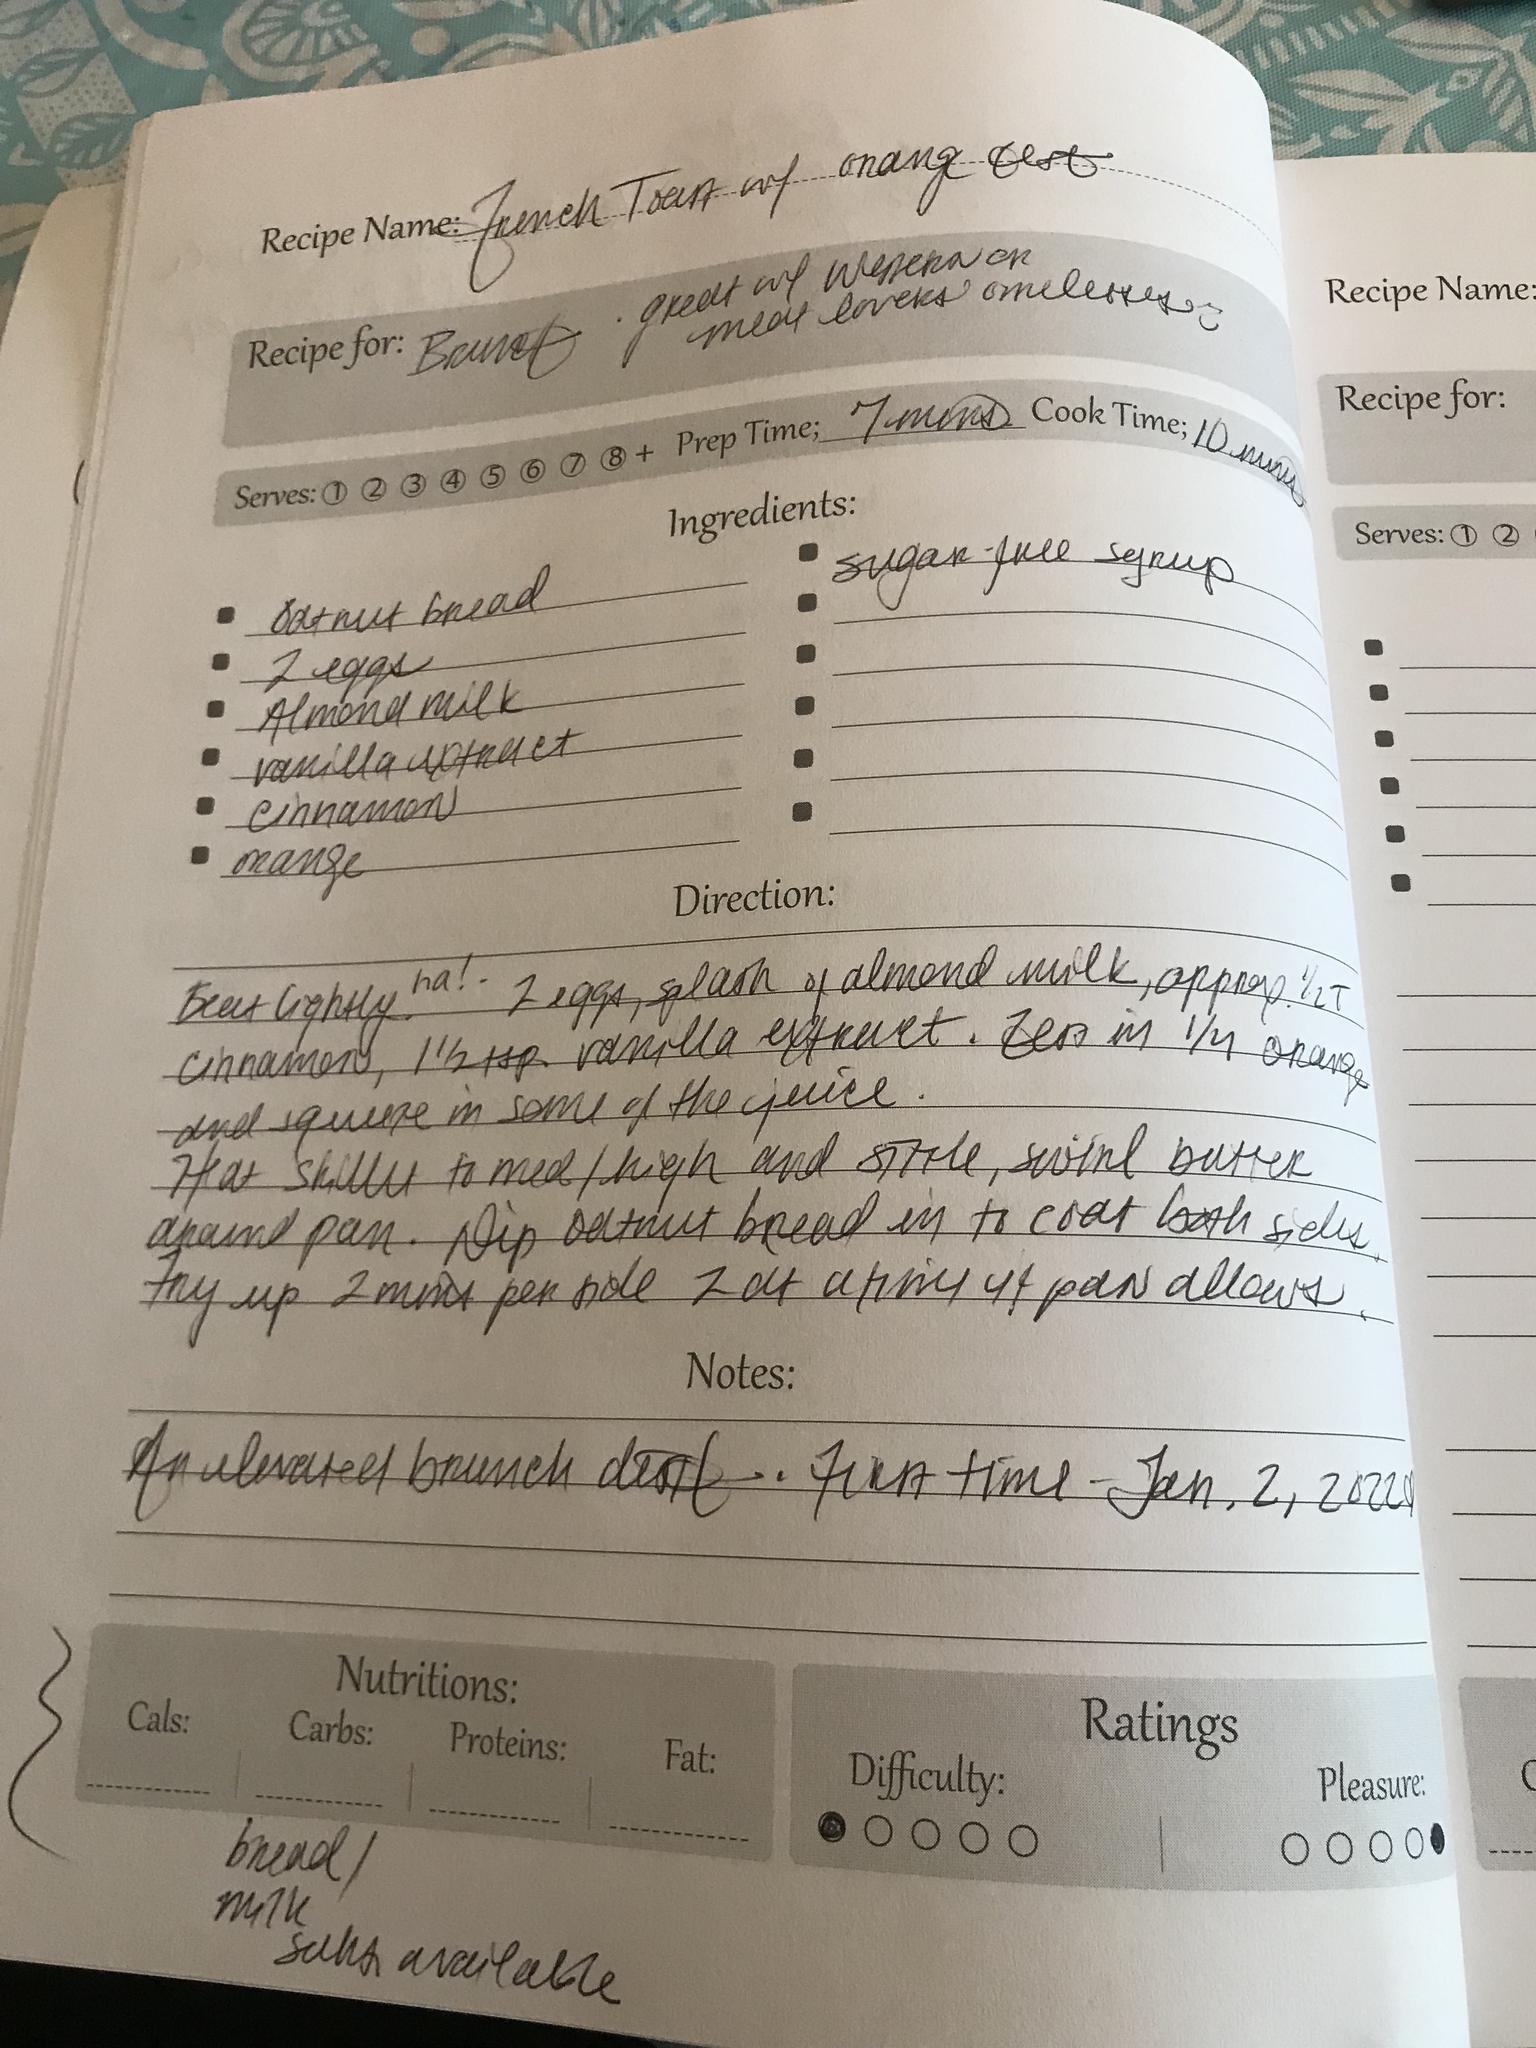 Recipe Name: French Toast w/ orang zest
Recipe for: Brunch . great w/ Western or
meat lovers omelettes
Serves: 1 2 3 4 5 6 7 8 + Prep Time; 7 mins Cook Time; 10 mins
Ingredients:
oatnut bread
2 eggs
Almond milk
vanilla extract
cinnamon
orange
sugar-free syrup
Direction:
Beat lightly. ha! - 2 eggs, splash of almond milk, approx. 1/2 T
cinnamon, 1 1/2 tsp. vanilla extract. Zess in 1/4 orange
and squeeze in some of the juice.
Heat skillet to med/high and sizzle, swirl butter
around pan. Dip oatnut bread in to coat both sides.
Fry up 2 mins per side 2 at a time if pan allows.
Notes:
An elevated brunch dish - . First time - Jan. 2, 2022
Nutritions:
Cals: Carbs: Proteins: Fat:
Ratings
Difficulty: Pleasure:
bread/
milk
subs available
Recipe Name:
Recipe for:
Serves: 1 2